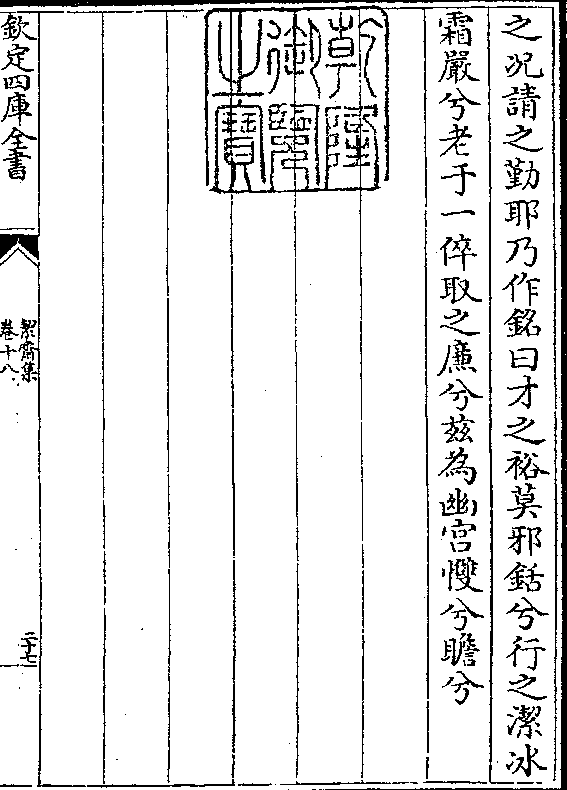 之况請之勤耶乃作銘曰才之裕莫邪銛兮行之潔冰
霜嚴兮老于一倅取之廉兮兹為幽宫慢兮瞻兮
乾隆御覽之寶
欽定四庫全書
絜齋集
卷十八
二十七